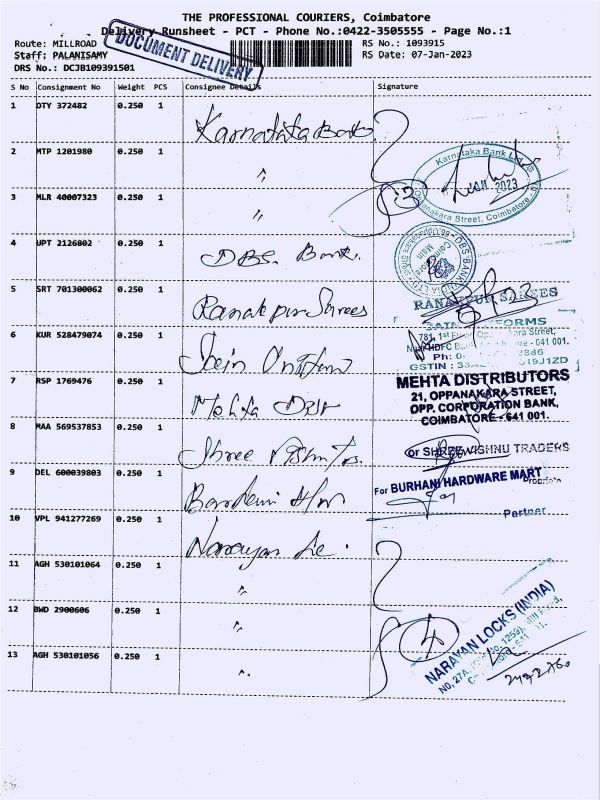 THE PROFESSIONAL COURIERS, Coimbatore
Delivery Runsheet - PCT - Phone No.:0422-3505555 - Page No.:1
Route: MILLROAD
RS No.: 1093915
Staff: PALANISAMY
RS Date: 07-Jan-2023
DRS No.: DCJB109391501
DOCUMENT DELIVERY
S No Consignment No Weight PCS Consignee Details Signature
1 DTY 372482 0.250 1 Karnataka Bank
2 MTP 1201980 0.250 1 "
Karnataka Bank
2023
Oppanakara Street, Coimbatore
3 MLR 40007323 0.250 1 "
4 UPT 2126802 0.250 1 DBS Bank.
DBS BANK
Coimbatore
Main
5 SRT 701300062 0.250 1 Ranakpur Sarees
RANAKPUR SAREES
6 KUR 528479074 0.250 1 Jain Uniform
FORMS
781, 1st Street,
HDFC 641 001.
Ph: 0- 2886
GSTIN : 33 J1ZD
7 RSP 1769476 0.250 1 Mehta Distr
MEHTA DISTRIBUTORS
21, OPPANAKARA STREET,
OPP. CORPORATION BANK,
COIMBATORE - 641 001.
8 MAA 569537853 0.250 1 Shree Vishnu Trs.
or SHREE VISHNU TRADERS
9 DEL 600039803 0.250 1 Hw
For BURHANI HARDWARE MART
Partner
10 VPL 941277269 0.250 1 Narayan Lo.
11 AGH 530101064 0.250 1 "
12 BWD 2900606 0.250 1 "
4
NARAYAN LOCKS (INDIA)
NO. 27A,
13 AGH 530101056 0.250 1 "